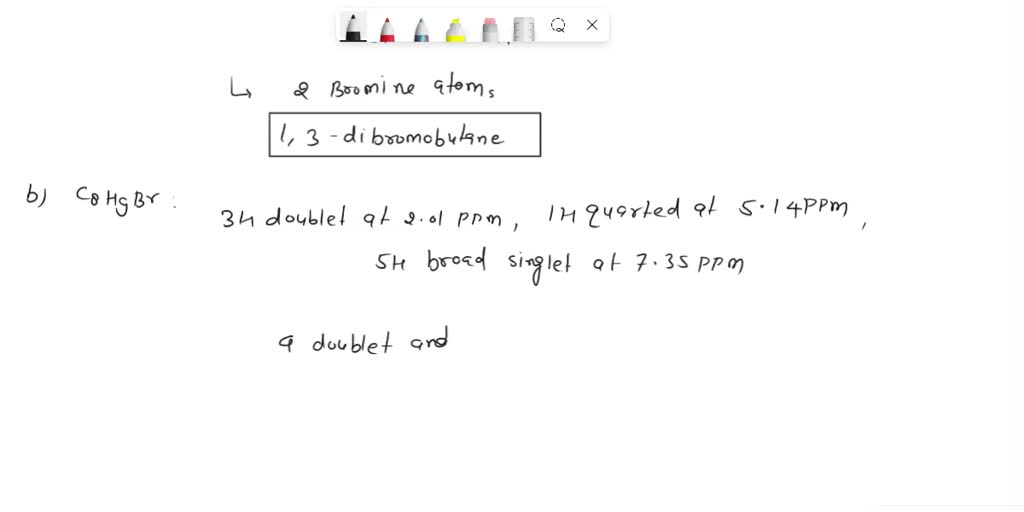 ↳ 2 Bromine atoms
1, 3-dibromobutane
b) C8H9Br :
3H doublet at 2.01 ppm, 1H quarted at 5.14 ppm,
5H broad singlet at 7.35 ppm
a doublet and